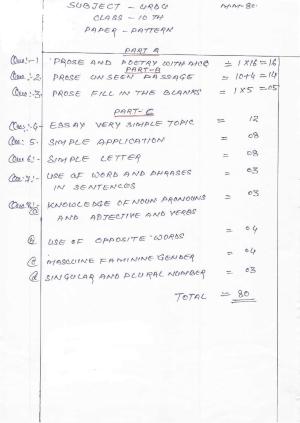 SUBJECT - URDU M.M-80.
CLASS - 10TH
PAPER - PATTERN
PART A
Que:-1 PROSE AND POETRY WITH MCQ = 1×16=16
PART-B
Que:-2 PROSE UNSEEN PASSAGE = 10+4=14
Que:-3 PROSE FILL IN THE BLANKS = 1×5=05
PART-C
Que:-4- ESSAY VERY SIMPLE TOPIC = 12
Que:5- SIMPLE APPLICATION = 08
Que 6:- SIMPLE LETTER = 08
Que:-7:- USE OF WORD AND PHRASES = 03
IN SENTENCES
Que:8:- KNOWLEDGE OF NOUN PRONOUNS = 03
(a) AND ADJECTIVE AND VERBS
(b) USE OF OPPOSITE WORDS = 04
(c) MASCULINE FAMININE GENDER = 04
(d) SINGULAR AND PLURAL NUMBER = 03
TOTAL = 80